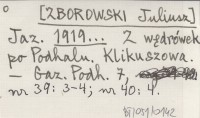 [ZBOROWSKI Juliusz]
Jaz. 1919... Z wędrówek
po Podhalu. Klikuszowa.
– Gaz. Podh. 7,
nr 39: 3–4; nr 40: 4.